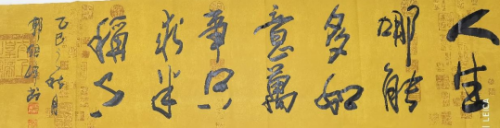 人生
哪能
多如
意萬
事只
求半
稱心
乙巳 秋月